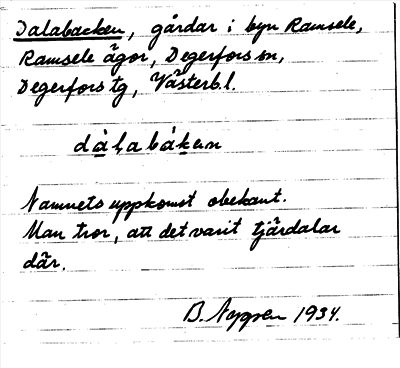 Dalabacken, gårdar i byn Ramsele,
Ramsele ägor, Degerfors sn,
Degerfors tg, Västerb.l.
dàlabákən
Namnets uppkomst obekant.
Man tror, att det varit tjärdalar
där.
B. 1934.